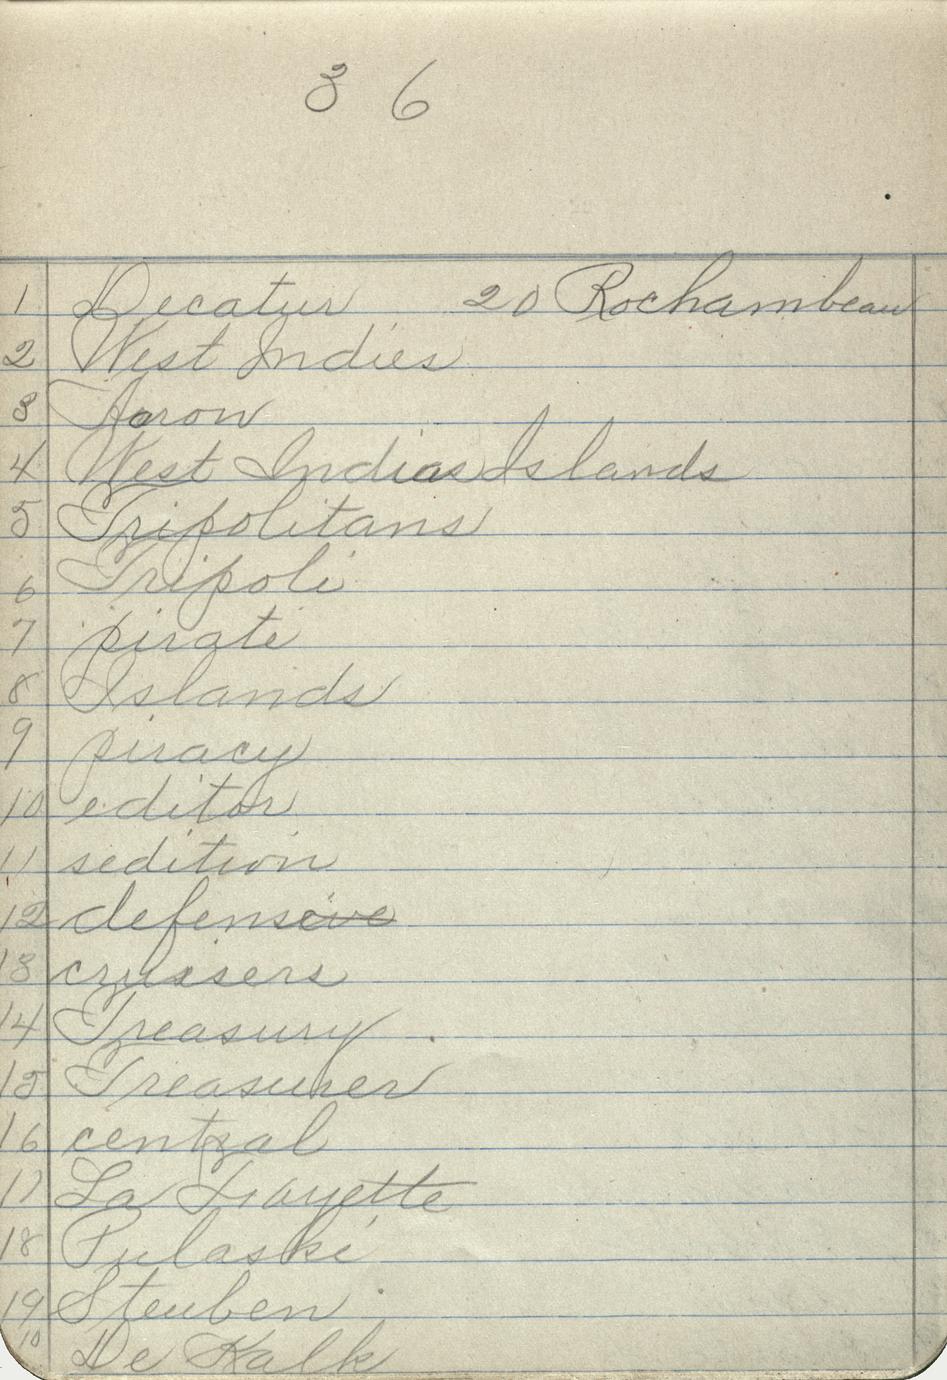 36
1 Decatur 20 Rochambeau
2 West Indies
3 Aaron
4 West Indias Islands
5 Tripolitans
6 Tripoli
7 pirate
8 Islands
9 piracy
10 editor
11 sedition
12 defensive
13 cruisers
14 Treasury
15 Treasurer
16 central
17 La Frayette
18 Pulaski
19 Steuben
10 De Kalk